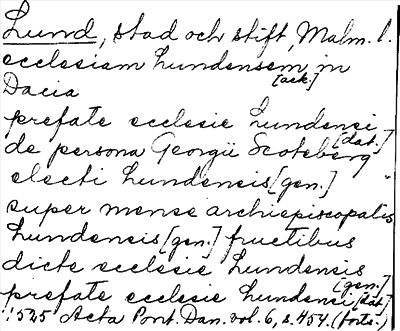 Lund, stad och stift, Malm. l.
ecclesiam Lundensem [ack.] in
Dacia
prefate ecclesie Lundensi [dat.]
de persona Georgii Scoteberg
electi Lundensis [gen.]
super mense archiepiscopalis
Lundensis [gen.] fructibus
dicte ecclesie Lundensis [gen.]
prefate ecclesie Lundensi [dat.]
1525 Acta Pont. Dan. vol. 6, s. 454. (forts.)